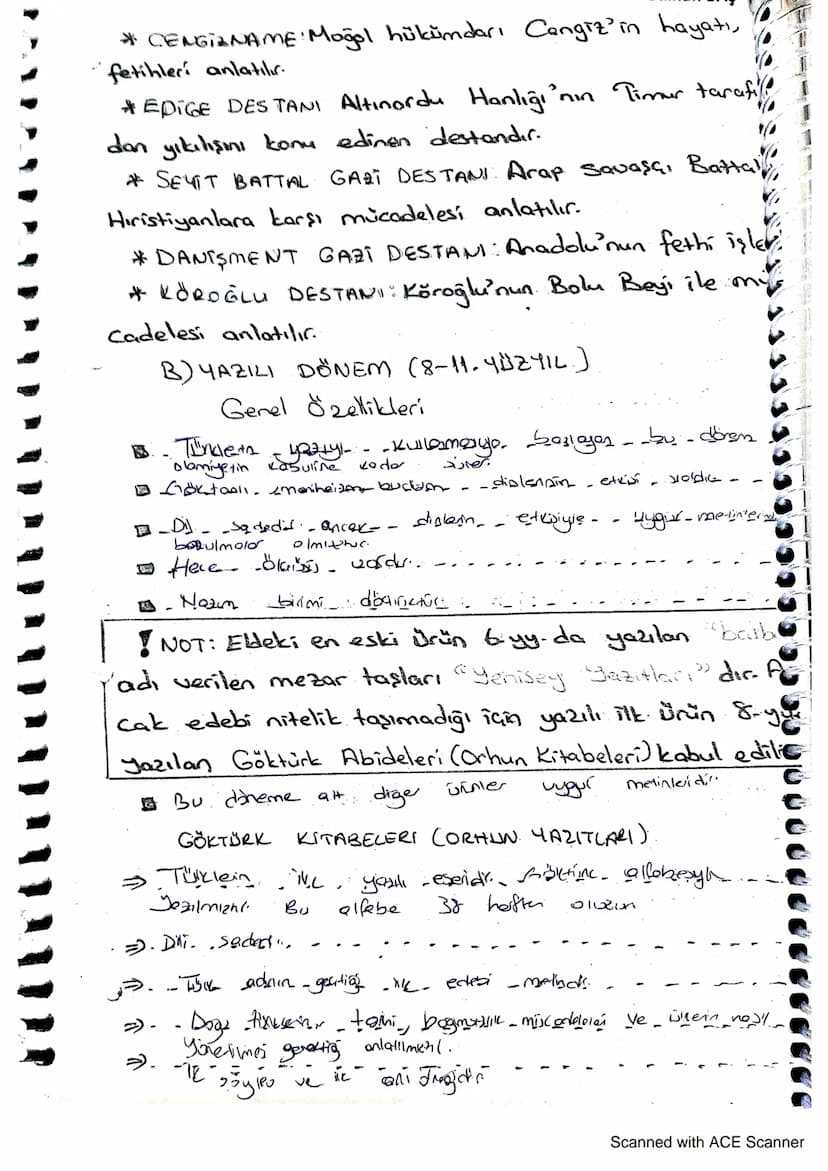 * CENGİZNAME: Moğol hükümdarı Cengiz'in hayatı,
fetihleri anlatılır.
* EDİGE DESTANI Altınordu Hanlığı'nın Timur taraf
dan yıkılışını konu edinen destandır.
* SEYİT BATTAL GAZİ DESTANI: Arap savaşçı Battal
Hıristiyanlara karşı mücadelesi anlatılır.
* DANİŞMENT GAZİ DESTANI: Anadolu'nun fethi işle
* KÖROĞLU DESTANI: Köroğlu'nun Bolu Beyi ile mü
cadelesi anlatılır.
B) YAZILI DÖNEM (8-11. YÜZYIL)
Genel Özellikleri
Türklerin yazıyı kullanmaya başlayan bu dönem
islamiyetin kabulüne kadar sürer.
Göktanrı, budizm dinlerinin etkisi vardır
Dil sadedir ancak dinlerin etkisiyle uygur metinlerinde
bozulmalar olmuştur.
Hece Ölçüsü vardır.
Nazım birimi dörtlüktür.
! NOT: Eldeki en eski ürün 6.yy.da yazılan "balb
adı verilen mezar taşları "Yenisey Yazıtları" dır. A
cak edebi nitelik taşımadığı için yazılı ilk ürün 8.yy
yazılan Göktürk Abideleri (Orhun Kitabeleri) kabul edili
Bu döneme ait diğer ürünler uygur metinleridir.
GÖKTÜRK KİTABELERİ (ORHUN YAZITLARI)
⇒ Türklerin ilk yazılı eseridir. Göktürk alfabesiyle
Yazılmıştır. Bu alfabe 38 harften oluşur
⇒ Dili sadedir.
⇒ Türk adının geçtiği ilk edebi metindir.
⇒ Doğu Türklerinin tarihi, bağımsızlık mücadeleleri ve ülkenin nasıl
Yönetilmesi gerektiği anlatılmıştır.
⇒ İlk söylev ve ilk anı örneğidir
Scanned with ACE Scanner